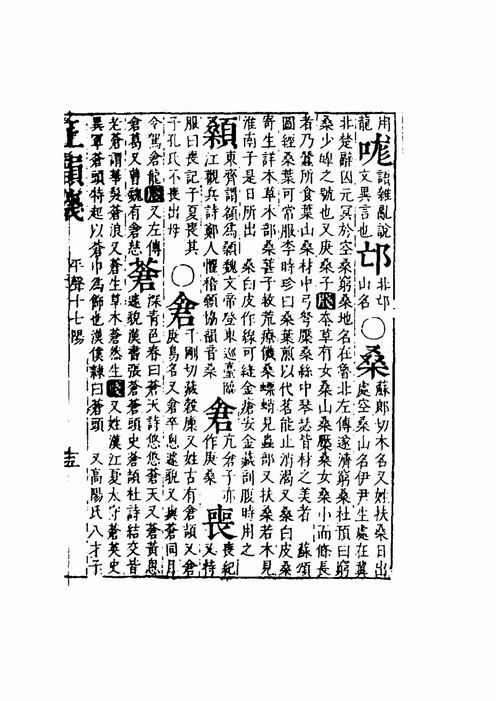 用龍
哤 語雜亂說
文異言也
邙 北邙
山名
○桑 蘇郎切木名又姓扶桑日出
處空桑山名伊尹生處在冀
北楚辭囚元冥於空桑窮桑地名在魯北左傳遂濟窮桑杜預曰窮
桑少皥之號也又庚桑子本草有女桑山桑檿桑女桑小而條長
者乃蠶所食葉山桑材中弓弩檿桑絲中琴瑟皆材之美者 蘇頌
圖經桑葉可常服李時珍曰桑葉煎以代茗能止消渴又桑白皮桑
寄生詳本草木部桑葚子救荒療饑桑螵蛸見蟲部又扶桑若木見
淮南子是日所出 桑白皮作線可縫金瘡安金藏剖腹時用之
顙 東齊謂頟爲顙魏文帝登東巡臺臨
江觀兵詩鄭人懼稽顙協韻音桑
倉 亢倉子亦
作庚桑
喪 喪紀
又持
服曰喪記子夏喪其
子孔氏不喪出母
○倉 千剛切藏穀廩又姓古有倉頡又倉
庚鳥名又倉卒悤遽貌又與蒼同月
令駕倉龍又左傳
倉葛又曹魏有倉慈
蒼 深青色春曰蒼天詩悠悠蒼天又蒼黃悤
遽貌漢書張蒼蒼頭史蒼頡杜詩結交皆
老蒼謂華髮蒼浪又蒼生草木蒼然生又姓漢江夏太守蒼英史
異軍蒼頭特起以蒼巾爲飾也漢僕隸曰蒼頭 又高陽氏八才子
韻彙 平聲十七陽